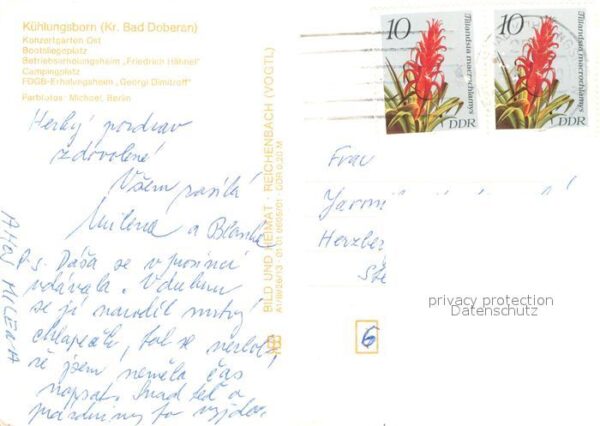 Kühlungsborn (Kr. Bad Doberan)
Konzertgarten Ost
Bootsliegeplatz
Betriebserholungsheim „Friedrich Hähnel“
Campingplatz
FDGB-Erholungsheim „Georgi Dimitroff“
Farbfotos: Michael, Berlin
Hezký pozdrav
z dovolené
Všem posílá
Milena a
P.s. Dáša se v prosinci
vdávala. V dubnu
se jí narodil mrtvý
chlapeček, tak se nezlob,
že jsem neměla čas
napsat. Snad teď o
prázdninách to vyjde.
AHOJ MILENA
BILD UND HEIMAT · REICHENBACH (VOGTL)
A1/B/26/13 01 01 0605/01 DDR 0,20 M
10
Tillandsia macrochlamys
DDR
10
Tillandsia macrochlamys
DDR
Frau
Jarom
Herzber
Ste
privacy protection
Datenschutz
6